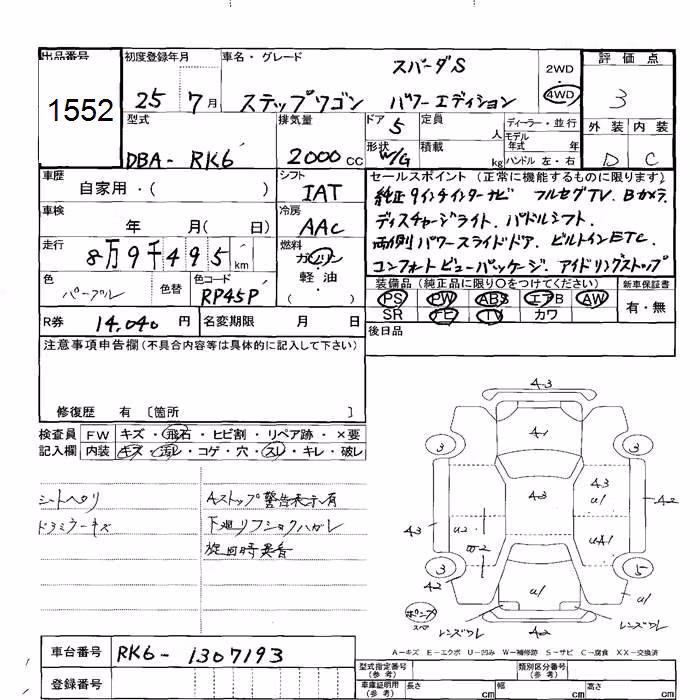 出品番号 初度登録年月 車名・グレード 評価点
1552 25 7月 ステップワゴン スパーダS パワーエディション 2WD 4WD 3
型式 排気量 ドア 5 定員 人 ディーラー・並行 外装 内装
DBA- RK6 2000cc 形状 W/G 積載 kg モデル年式 年 ハンドル 左・右 D C
車歴 自家用・( ) シフト IAT
セールスポイント (正常に機能するものに限ります)
純正9インチインターナビ フルセグTV、Bカメラ、
車検 年 月( 日) 冷房 AAC
ディスチャージライト、パドルシフト、
走行 8万9千495km 燃料 ガソリン 軽・油 ( )
両側パワースライドドア、ビルトインETC、
コンフォートビューパッケージ、アイドリングストップ
色 パープル 色替 色コード RP45P
装備品 (純正品に限り○をつけてください) 新車保証書
PS PW ABS エアB AW 有・無
SR ナビ TV カワ
R券 14,040 円 名変期限 月 日
後日品
注意事項申告欄(不具合内容等は具体的に記入して下さい)
修復歴 有 〔箇所 〕
検査員 FW キズ・飛石・ヒビ割・リペア跡・×要
記入欄 内装 キズ・汚レ・コゲ・穴・スレ・キレ・破レ
シートヘタリ Aストップ警告表示有
ドアミラーキズ 下廻リフショクハガレ
旋回時異音
A3
A1
3 3
A3 A3 A3 U1 A2
U2 UA1
3 5
A2 U1 U1
レンズワレ A2 レンズワレ
A-キズ E-エクボ U-凹み W-補修跡 S-サビ C-腐食 XX-交換済
車台番号 RK6- 1307193
登録番号
型式指定番号(参考) 類別区分番号(参考)
車庫証明用(参考) 長さ cm 幅 cm 高さ cm